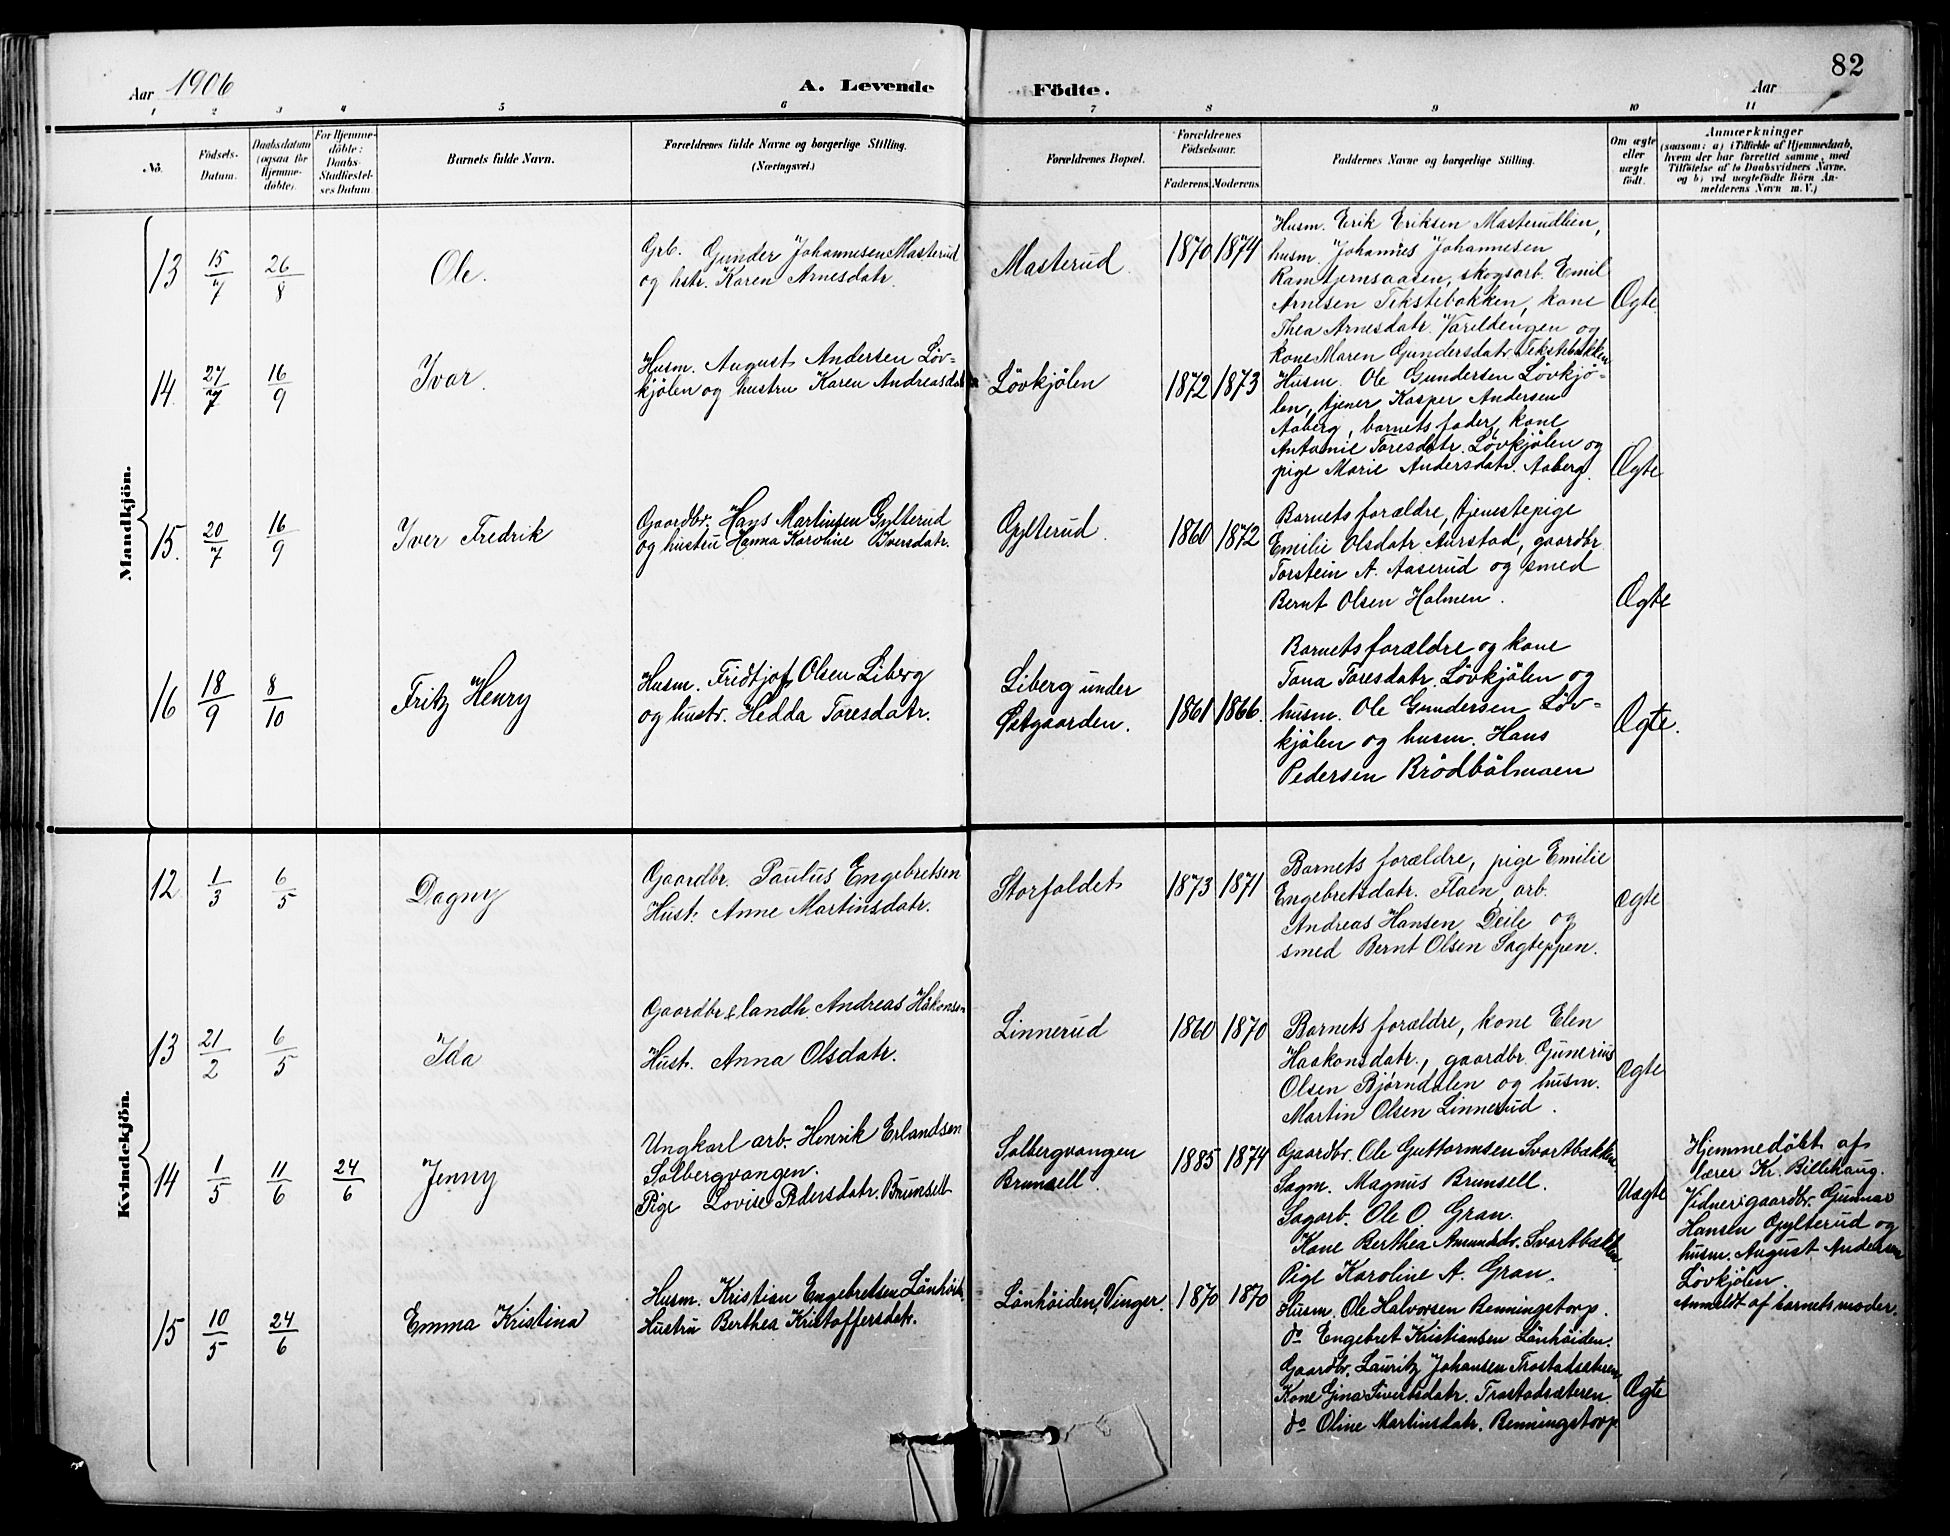 Aar 1906
A. Levende
Födte.
Aar
82
1 2 3 4 5 6 7 8 9 10 11
No.
Födsels-
Datum.
Daabsdatum
(ogsaa for
Hjemme-
döbte).
For Hjemme-
döbte:
Daabs-
Stadfæstel-
ses Datum.
Barnets fulde Navn.
Forældrenes fulde Navne og borgerlige Stilling.
(Næringsvei.)
Forældrenes Bopæl.
Forældrenes
Födselsaar.
Faderens. Moderens.
Faddernes Navne og borgerlige Stilling.
Om ægte
eller
uægte
født.
Anmærkninger
(saasom: a) i Tilfælde af Hjemmedaab,
hvem der har forrettet samme, med
Tilföielse af to Daabsvidners Navne,
og b) ved uægtefödte Börn An-
melderens Navn m. V.)
Mandkjön.
13
15/7
26/8
Ole.
Grb. Gunder Johannesen Masterud
og hstr. Karen Arnesdatr.
Masterud.
1870 1874
Husm. Erik Eriksen Masterudlien,
husm. Johannes Johannesen
Ramtjernsaasen, skogsarb. Emil
Arnesen Tekstebakken, kone
Thea Arnesdatr. Varildengen og
kone Maren Gundersdatr. Tekstebakken
Ægte.
14.
27/7
16/9
Ivar.
Husm. August Andersen Löv-
kjölen og hustru Karen Andreasdatr
Lövkjölen
1872 1873
Husm. Ole Gundersen Lövkjö-
len, tjener Kasper Andersen
Aaberg, barnets fader, kone
Antonie Toresdatr. Lövkjölen og
pige Marie Andersdatr. Aaberg.
Ægte
15.
20/7
16/9
Iver Fredrik
Gaardbr. Hans Martinsen Gylterud
og hustru Hanna Karoline Iversdatr.
Gylterud.
1860 1872
Barnets forældre, tjenestepige
Emilie Olsdatr. Aurstad, gaardbr.
Torstein A. Aaserud og smed
Bernt Olsen Holmen.
Ægte
16
18/9
8/10
Fritz Henry
Husm. Fridtjof Olsen Liberg
og hustr. Hedda Toresdatr.
Liberg under
Østgaarden.
1861 1866.
Barnets forældre og kone
Tona Toresdatr. Lövkjölen og
husm. Ole Gundersen Löv-
kjölen og husm. Hans
Pedersen Brödbölmoen
Ægte.
Kvindekjön.
12
1/3
6/5
Dagny
Gaardbr. Paulus Engebretsen
Hust. Anne Martinsdatr.
Storfaldet
1873 1871
Barnets forældre, pige Emilie
Engebretsdatr. Flaen, arb.
Andreas Hansen Deile og
smed Bernt Olsen Sagteppen.
Ægte
13
21/2
6/5
Ida
Gaardbr & landh. Andreas Håkonsen
Hust. Anna Olsdatr.
Linnerud
1860 1870
Barnets forældre, kone Elen
Haakonsdatr., gaardbr. Gunerius
Olsen Bjørndalen og husm.
Martin Olsen Linnerud.
Ægte
14
1/5
11/6
24/6
Jenny
Ungkarl arb. Henrik Erlandsen
Solbergvangen.
Pige Lovise Pedersdatr. Brunsell
Solbergvangen
Brunsell.
1885 1874
Gaardbr. Ole Guttormsen Svartbakken
Sagm. Magnus Brunsell.
Sagarb. Ole O. Gran.
Kone Berthea Amundsdr. Svartbakken
Pige Karoline A. Gran.
Uægte
Hjemmedöbt af
lærer Kr. Billehaug.
Vidner: gaardbr. Gunnar
Hansen Gylterud og
husm. August Andersen
Lövkjölen.
Anmeldt af barnets moder.
15
10/5
24/6
Emma Kristina
Husm. Kristian Engebretsen Lönhöid.
Hustru Berthea Kristoffersdatr.
Lönhöiden, Vinger
1870 1870
Husm. Ole Halvorsen Benningstorp.
do Engebret Kristiansen Lönhöiden.
Gaardbr. Lauritz Johansen Trostadsæteren
Kone Gina Sivertsdatr. Trostadsæteren.
do Oline Martinsdatr. Benningstorp
Ægte